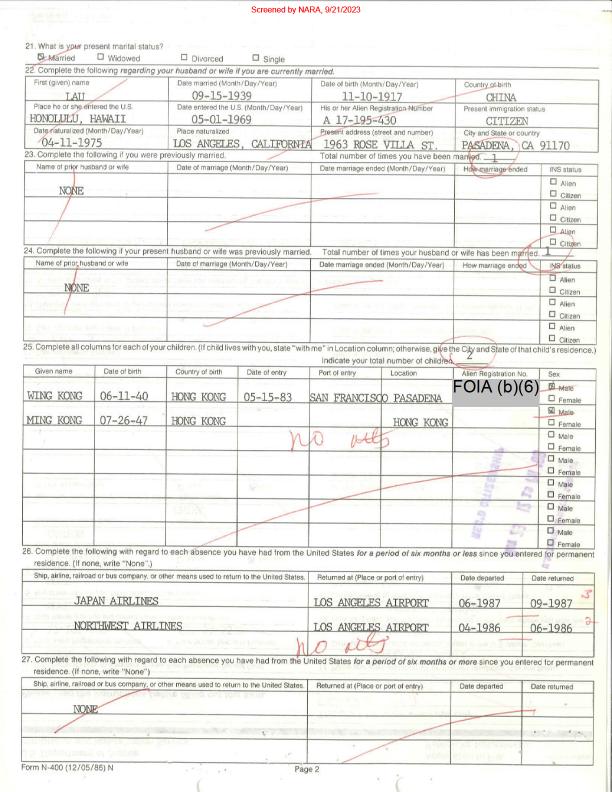 Screened by NARA, 9/21/2023
21. What is your present marital status?
☒ Married ☐ Widowed ☐ Divorced ☐ Single
22. Complete the following regarding your husband or wife if you are currently married.
First (given) name Date married (Month/Day/Year) Date of birth (Month/Day/Year) Country of birth
LAU 09-15-1939 11-10-1917 CHINA
Place he or she entered the U.S. Date entered the U.S. (Month/Day/Year) His or her Alien Registration Number Present immigration status
HONOLULU, HAWAII 05-01-1969 A 17-195-430 CITIZEN
Date naturalized (Month/Day/Year) Place naturalized Present address (street and number) City and State or country
04-11-1975 LOS ANGELES, CALIFORNIA 1963 ROSE VILLA ST. PASADENA, CA 91170
23. Complete if you were previously married. Total number of times you have been married. 1
Name of prior husband or wife Date of marriage (Month/Day/Year) Date marriage ended (Month/Day/Year) How marriage ended INS status
NONE ☐ Alien
☐ Citizen
☐ Alien
☐ Citizen
☐ Alien
☐ Citizen
24. Complete the following if your present husband or wife was previously married. Total number of times your husband or wife has been married. 1
Name of prior husband or wife Date of marriage (Month/Day/Year) Date marriage ended (Month/Day/Year) How marriage ended INS status
NONE ☐ Alien
☐ Citizen
☐ Alien
☐ Citizen
☐ Alien
☐ Citizen
25. Complete all columns for each of your children. (If child lives with you, state "with me" in Location column; otherwise, give the City and State of that child's residence.)
Indicate your total number of children. 2
Given name Date of birth Country of birth Date of entry Port of entry Location Alien Registration No. Sex
WING KONG 06-11-40 HONG KONG 05-15-83 SAN FRANCISCO PASADENA FOIA (b)(6) ☒ Male
☐ Female
MING KONG 07-26-47 HONG KONG HONG KONG ☒ Male
☐ Female
no
☐ Male
☐ Female
☐ Male
☐ Female
☐ Male
☐ Female
☐ Male
☐ Female
☐ Male
☐ Female
26. Complete with regard to each absence you have had from the United States for a period of six months or less since you entered for permanent
residence. (If none, write "None".)
Ship, airline, railroad or bus company, or other means used to return to the United States. Returned at (Place or port of entry) Date departed Date returned
JAPAN AIRLINES LOS ANGELES AIRPORT 06-1987 09-1987 3
NORTHWEST AIRLINES LOS ANGELES AIRPORT 04-1986 06-1986 2
no
27. Complete the following with regard to each absence you have had from the United States for a period of six months or more since you entered for permanent
residence. (If none, write "None")
Ship, airline, railroad or bus company, or other means used to return to the United States. Returned at (Place or port of entry) Date departed Date returned
NONE
Form N-400 (12/05/86) N Page 2